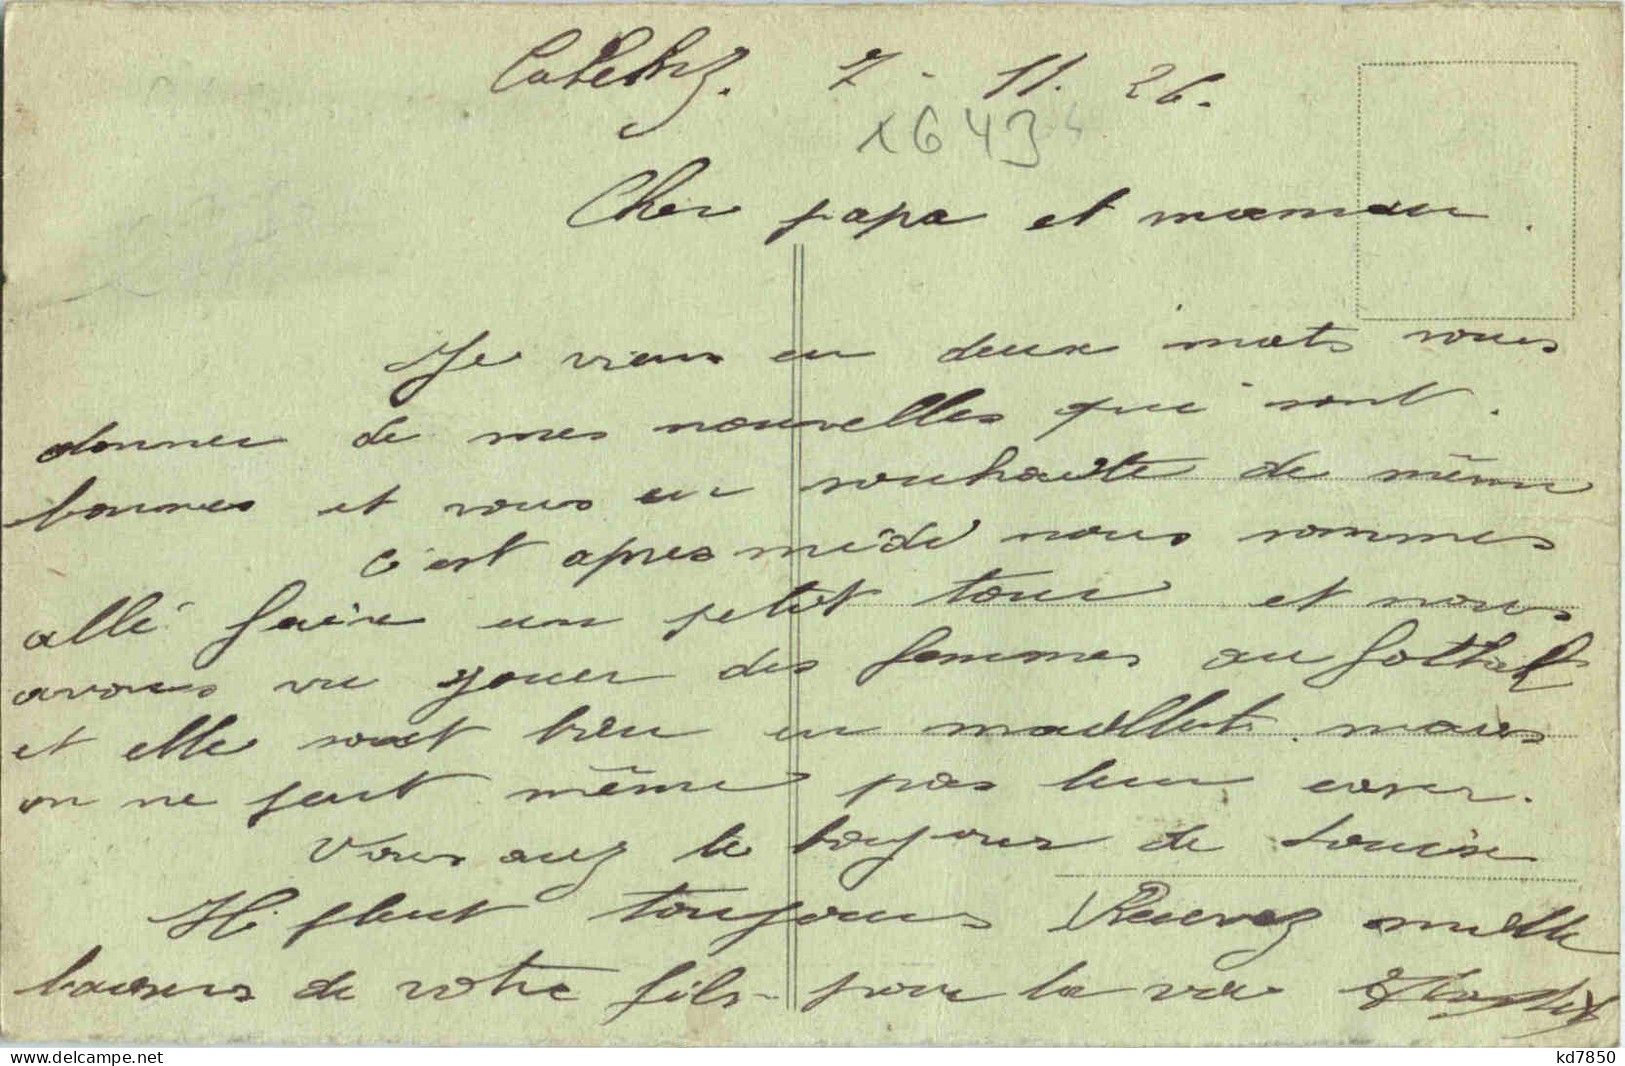 Coblenz. 7 - 11. 26.
16434
Cher papa et maman.
Je viens en deux mots vous
donner de mes nouvelles qui sont.
bonnes et vous en souhaite de même
c'est apres midi nous sommes
allé faire un petit tour et nous
avons vu jouer des femmes au fotball
et elle sont bien en maillot. mais
on ne peut même pas leur causer.
Vous avez le bonjour de Louise
Il pleut toujours Recevez mille
baisers de votre fils pour la vie
To Delcampe.net
kd7850